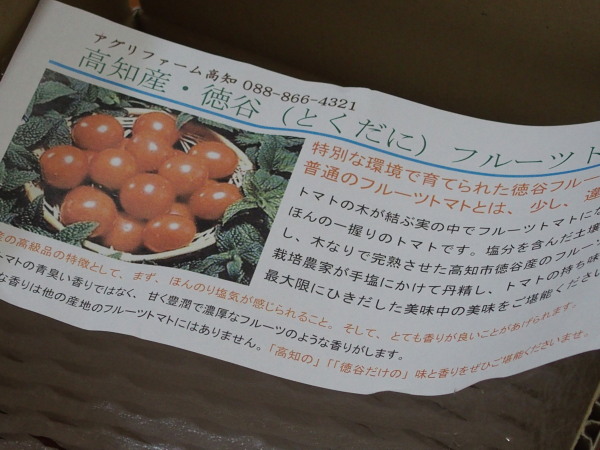 アグリファーム高知 088-866-4321
高知産・徳谷（とくだに）フルーツト
特別な環境で育てられた徳谷フルー
普通のフルーツトマトとは、少し、違
トマトの木が結ぶ実の中でフルーツトマトにな
ほんの一握りのトマトです。塩分を含んだ土壌
し、木なりで完熟させた高知市徳谷産のフルーツ
栽培農家が手塩にかけて丹精し、トマトの持ち味
最大限にひきだした美味中の美味をご堪能ください
の高級品の特徴として、まず、ほんのり塩気が感じられること。そして、とても香りが良いことがあげられます。
トマトの青臭い香りではなく、甘く豊潤で濃厚なフルーツのような香りがします。
な香りは他の産地のフルーツトマトにはありません。「高知の」「「徳谷だけの」味と香りをぜひご堪能くださいませ。